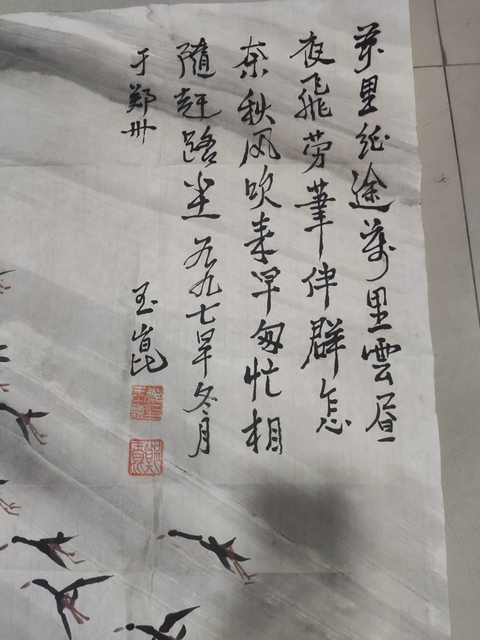 萬里征途萬里雲昼
夜飛劳伴群怎
奈秋风吹来早匆忙相
隨赶路尘九九七年冬月
于郑州
玉崑